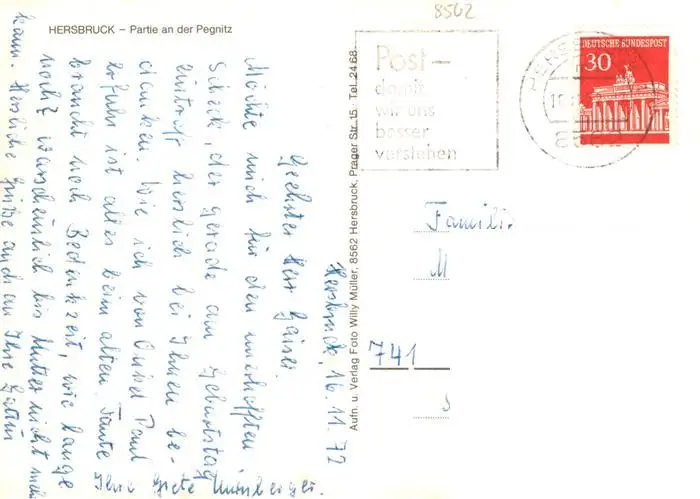 8562
HERSBRUCK – Partie an der Pegnitz
Post –
damit
wir uns
besser
verstehen
DEUTSCHE BUNDESPOST
30
8562
Aufn. u. Verlag Foto Willy Müller, 8562 Hersbruck, Prager Str. 15 · Tel. 2468
Familie
M
741
Hersbruck, 16. 11. 72
Geehrter Herr Gaiser.
Möchte mich für den unverhofften
Scheck, der gerade am Geburtstag
eintraff herzlich bei Ihnen be-
danken. Wie ich von Onkel Paul
erfuhr ist alles beim alten. Tante
braucht noch Bedenkzeit, wie lange
noch? warscheinlich bis Mutter nicht mehr
kann. Herzliche Grüße auch an Ihre Gattin
Ihre Grete